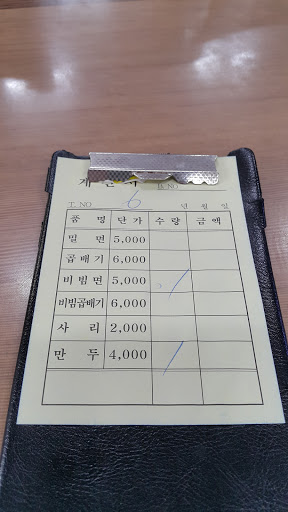 계 산 서 B. NO
T. NO 6 년 월 일
품 명 단 가 수 량 금 액
밀 면 5,000
곱 배 기 6,000
비 빔 면 5,000 /
비빔곱배기 6,000
사 리 2,000
만 두 4,000 /